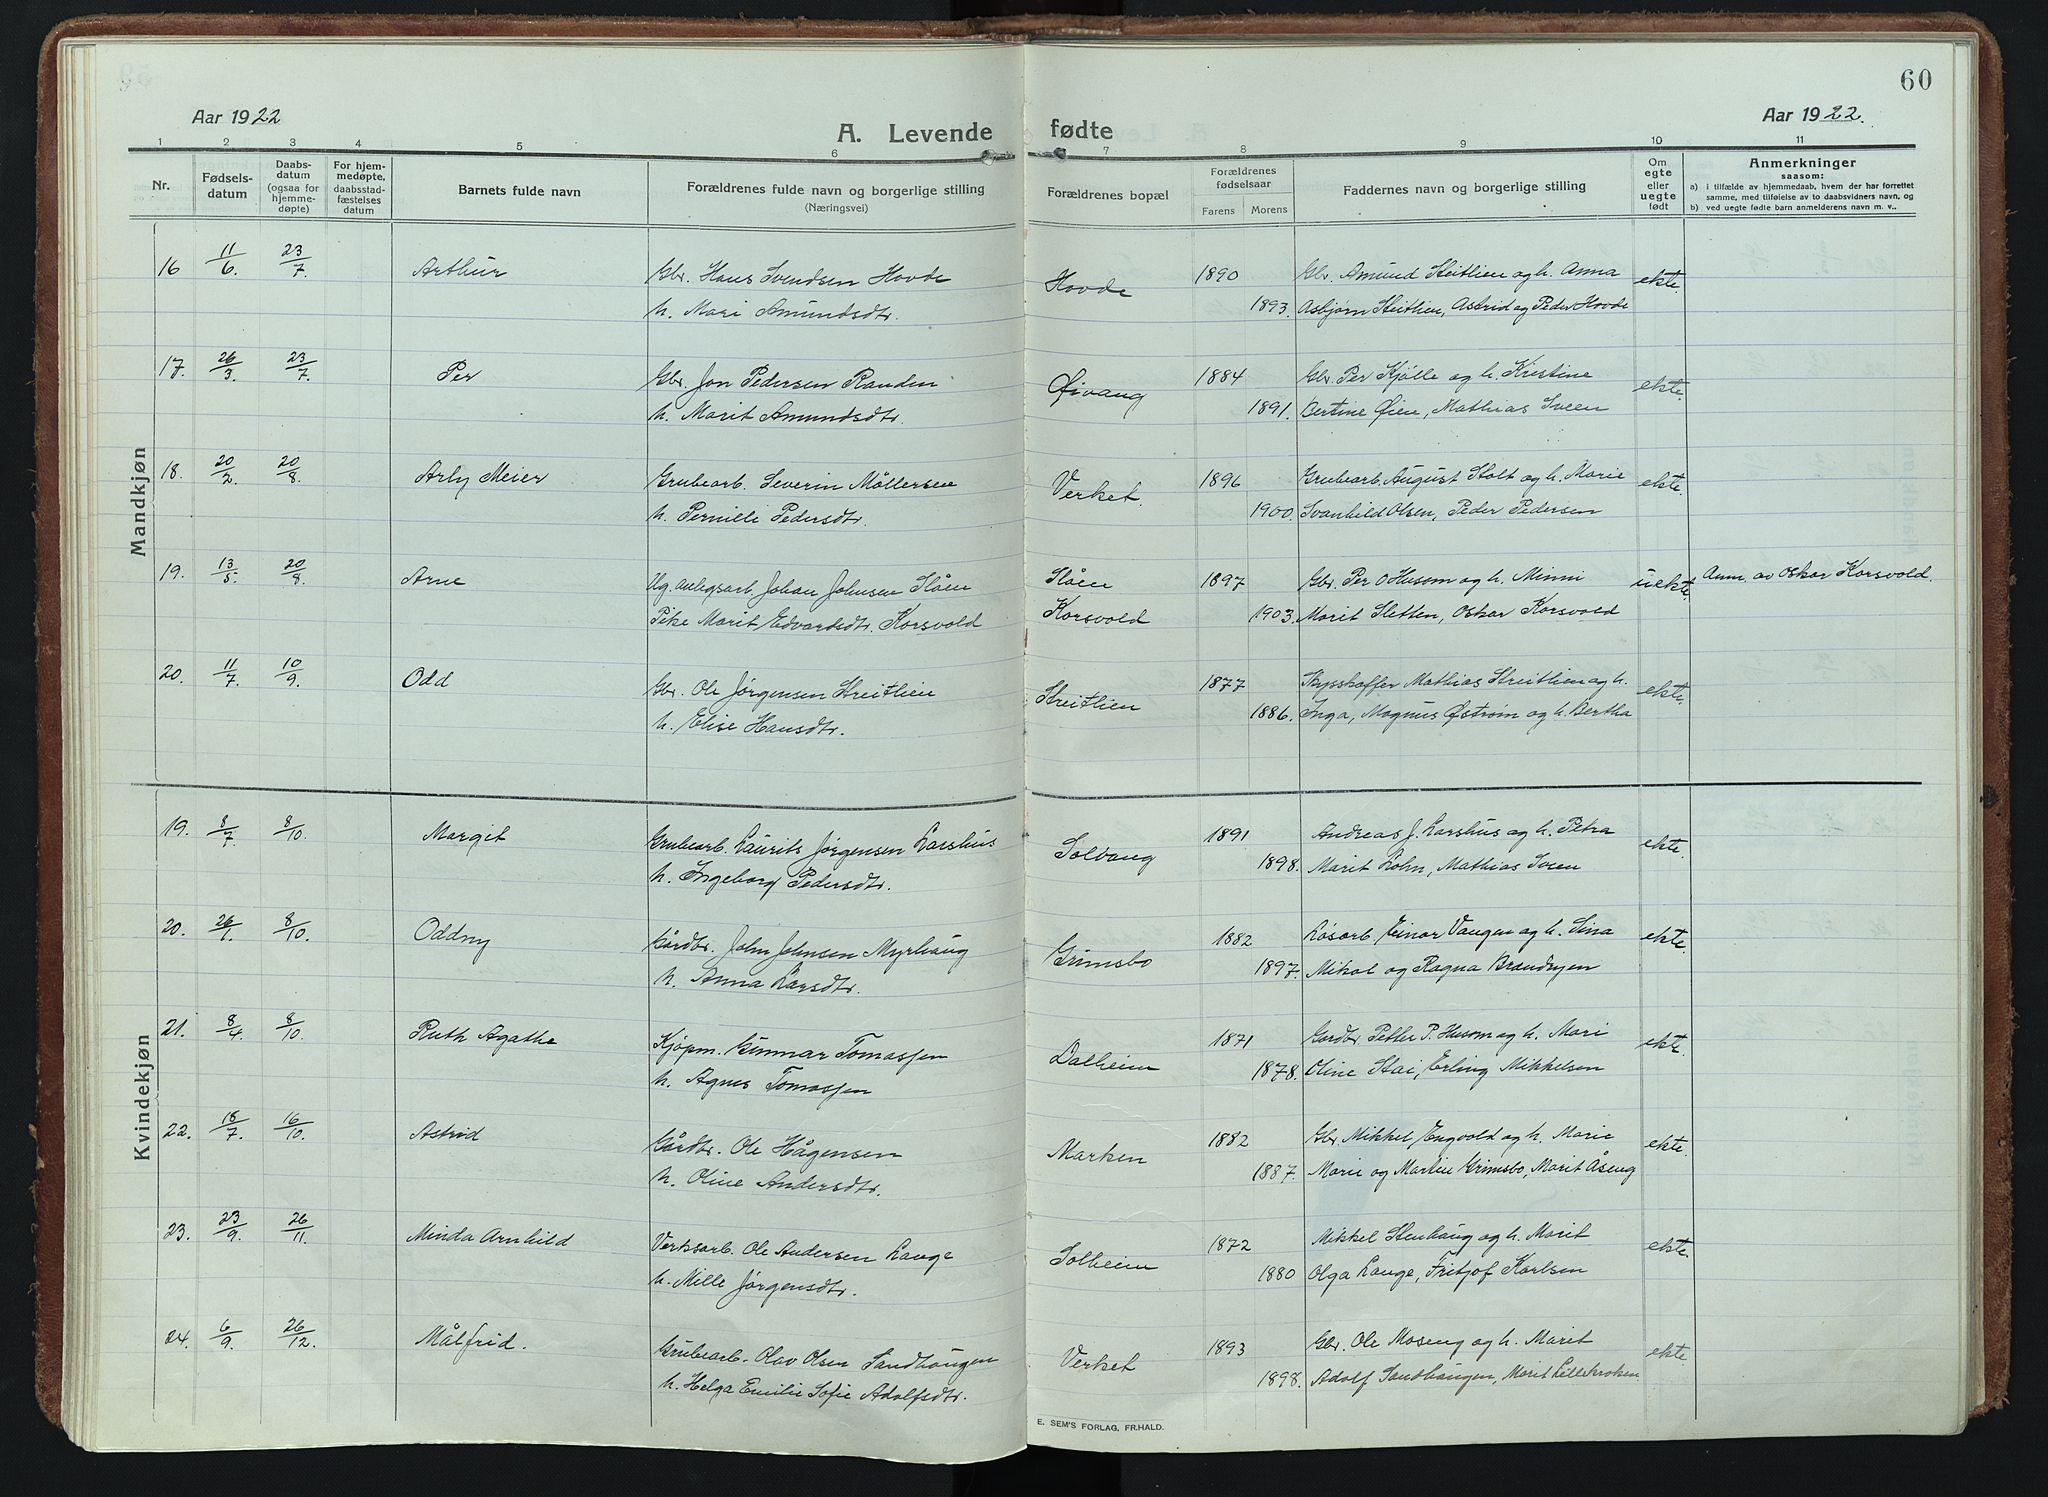 60
Aar 1922
A. Levende fødte
Aar 1922.
1 2 3 4 5 6 7 8 9 10 11
Nr.
Fødsels-
datum
Daabs-
datum
(ogsaa for
hjemme-
døpte)
For hjem-
medøpte,
daabsstad-
fæstelses
datum
Barnets fulde navn
Forældrenes fulde navn og borgerlige stilling
(Næringsvei)
Forældrenes bopæl
Forældrenes
fødselsaar
Farens Morens
Faddernes navn og borgerlige stilling
Om
egte
eller
uegte
født
Anmerkninger
saasom:
a) i tilfælde av hjemmedaab, hvem der har forrettet
samme, med tilføielse av to daabsvidners navn, og
b) ved uegte fødte barn anmelderens navn m. v..
Mandkjøn
16 11/6. 23/7. Arthur Gbr. Hans Svendsen Hovde Hovde 1890 Gbr. Amund Steitlien og h. Anna ekte.
h. Mari Amundsdtr. 1893. Asbjørn Steitlien, Astrid og Peder Hovde
17. 26/3. 23/7. Per Gbr. Jon Pedersen Randen Øivang 1884 Gbr. Per Kjølle og h. Kristine ekte.
h. Marit Amundsdtr. 1891. Bertine Øien, Mathias Sveen
18. 20/2. 20/8. Arly Meier Grubearb. Severin Møllersen Verket. 1896 Grubearb. August Stolt og h. Marie ekte.
h. Pernille Pedersdtr. 1900. Svanhild Olsen, Peder Pedersen
19. 13/5. 20/8. Arne Ug. anlegsarb. Johan Johnsen Slåen Slåen 1897 Gbr. Per O Husom og h. Minni uekte. Anm. av Oskar Korsvold.
Pike Marit Edvardsdtr. Korsvold Korsvold 1903. Marit Sletten, Oskar Korsvold
20. 11/7. 10/9. Odd Gbr. Ole Jørgensen Streitlien Streitlien 1877 Skysskaffer Mathias Streitlien og h. ekte.
h. Elise Hansdtr. 1886. Inga, Magnus Østrøm og h. Bertha
Kvindekjøn
19. 8/7 8/10. Margit Grubearb. Laurits Jørgensen Larshus Solvang 1891 Andreas J. Larshus og h. Petra ekte.
h. Ingeborg Pedersdtr. 1898. Marit Løhn, Mathias Sveen
20. 26/1. 8/10. Oddny Gårdbr. John Johnsen Myrhaug Grimsbo 1882 Løsarb. Einar Vangen og h. Sina ekte.
h. Anna Larsdtr. 1897. Mikal og Ragna Brandnyen
21. 8/4 8/10. Ruth Agathe Kjøpm. Gunnar Tomassen Dalheim 1871 Gardbr. Petter P. Husom og h. Mari ekte.
h. Agnes Tomassen 1878. Oline Stai, Erling Mikkelsen
22. 18/7. 16/10. Astrid Gårdbr. Ole Hågensen Marken 1882 Gbr. Mikkel Engvold og h. Marie ekte.
h. Oline Andersdtr. 1887. Marie og Martin Grimsbo, Marit Åseng
23. 23/9. 26/11. Minda Arnhild Verksarb. Ole Andersen Lange Solheim 1872 Mikkel Stenhaug og h. Marit ekte.
h. Mille Jørgensdtr. 1880 Olga Lange, Fritjof Karlsen
24. 6/9. 26/12. Målfrid. Grubearb. Olav Olsen Sandhaugen Verket 1893 Gbr. Ole Moseng og h. Marit ekte.
h. Helga Emilie Sofie Adolfsdtr. 1898. Adolf Sandhaugen, Marit Lillekroken
E. SEM'S FORLAG, FR.HALD.